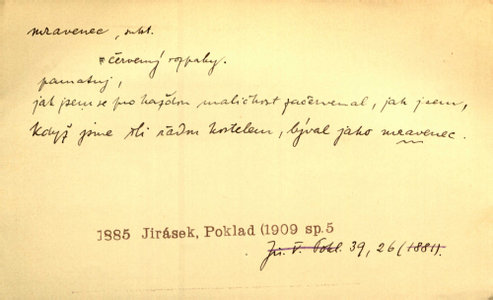 mravenec, subst.
červený rozpaky.
pamatuj,
jak jsem se pro každou maličkost začervenal, jak jsem,
když jsme šli řadou kostelem, býval jako mravenec.
1885 Jirásek, Poklad (1909 sp.5
39, 26 (1881).